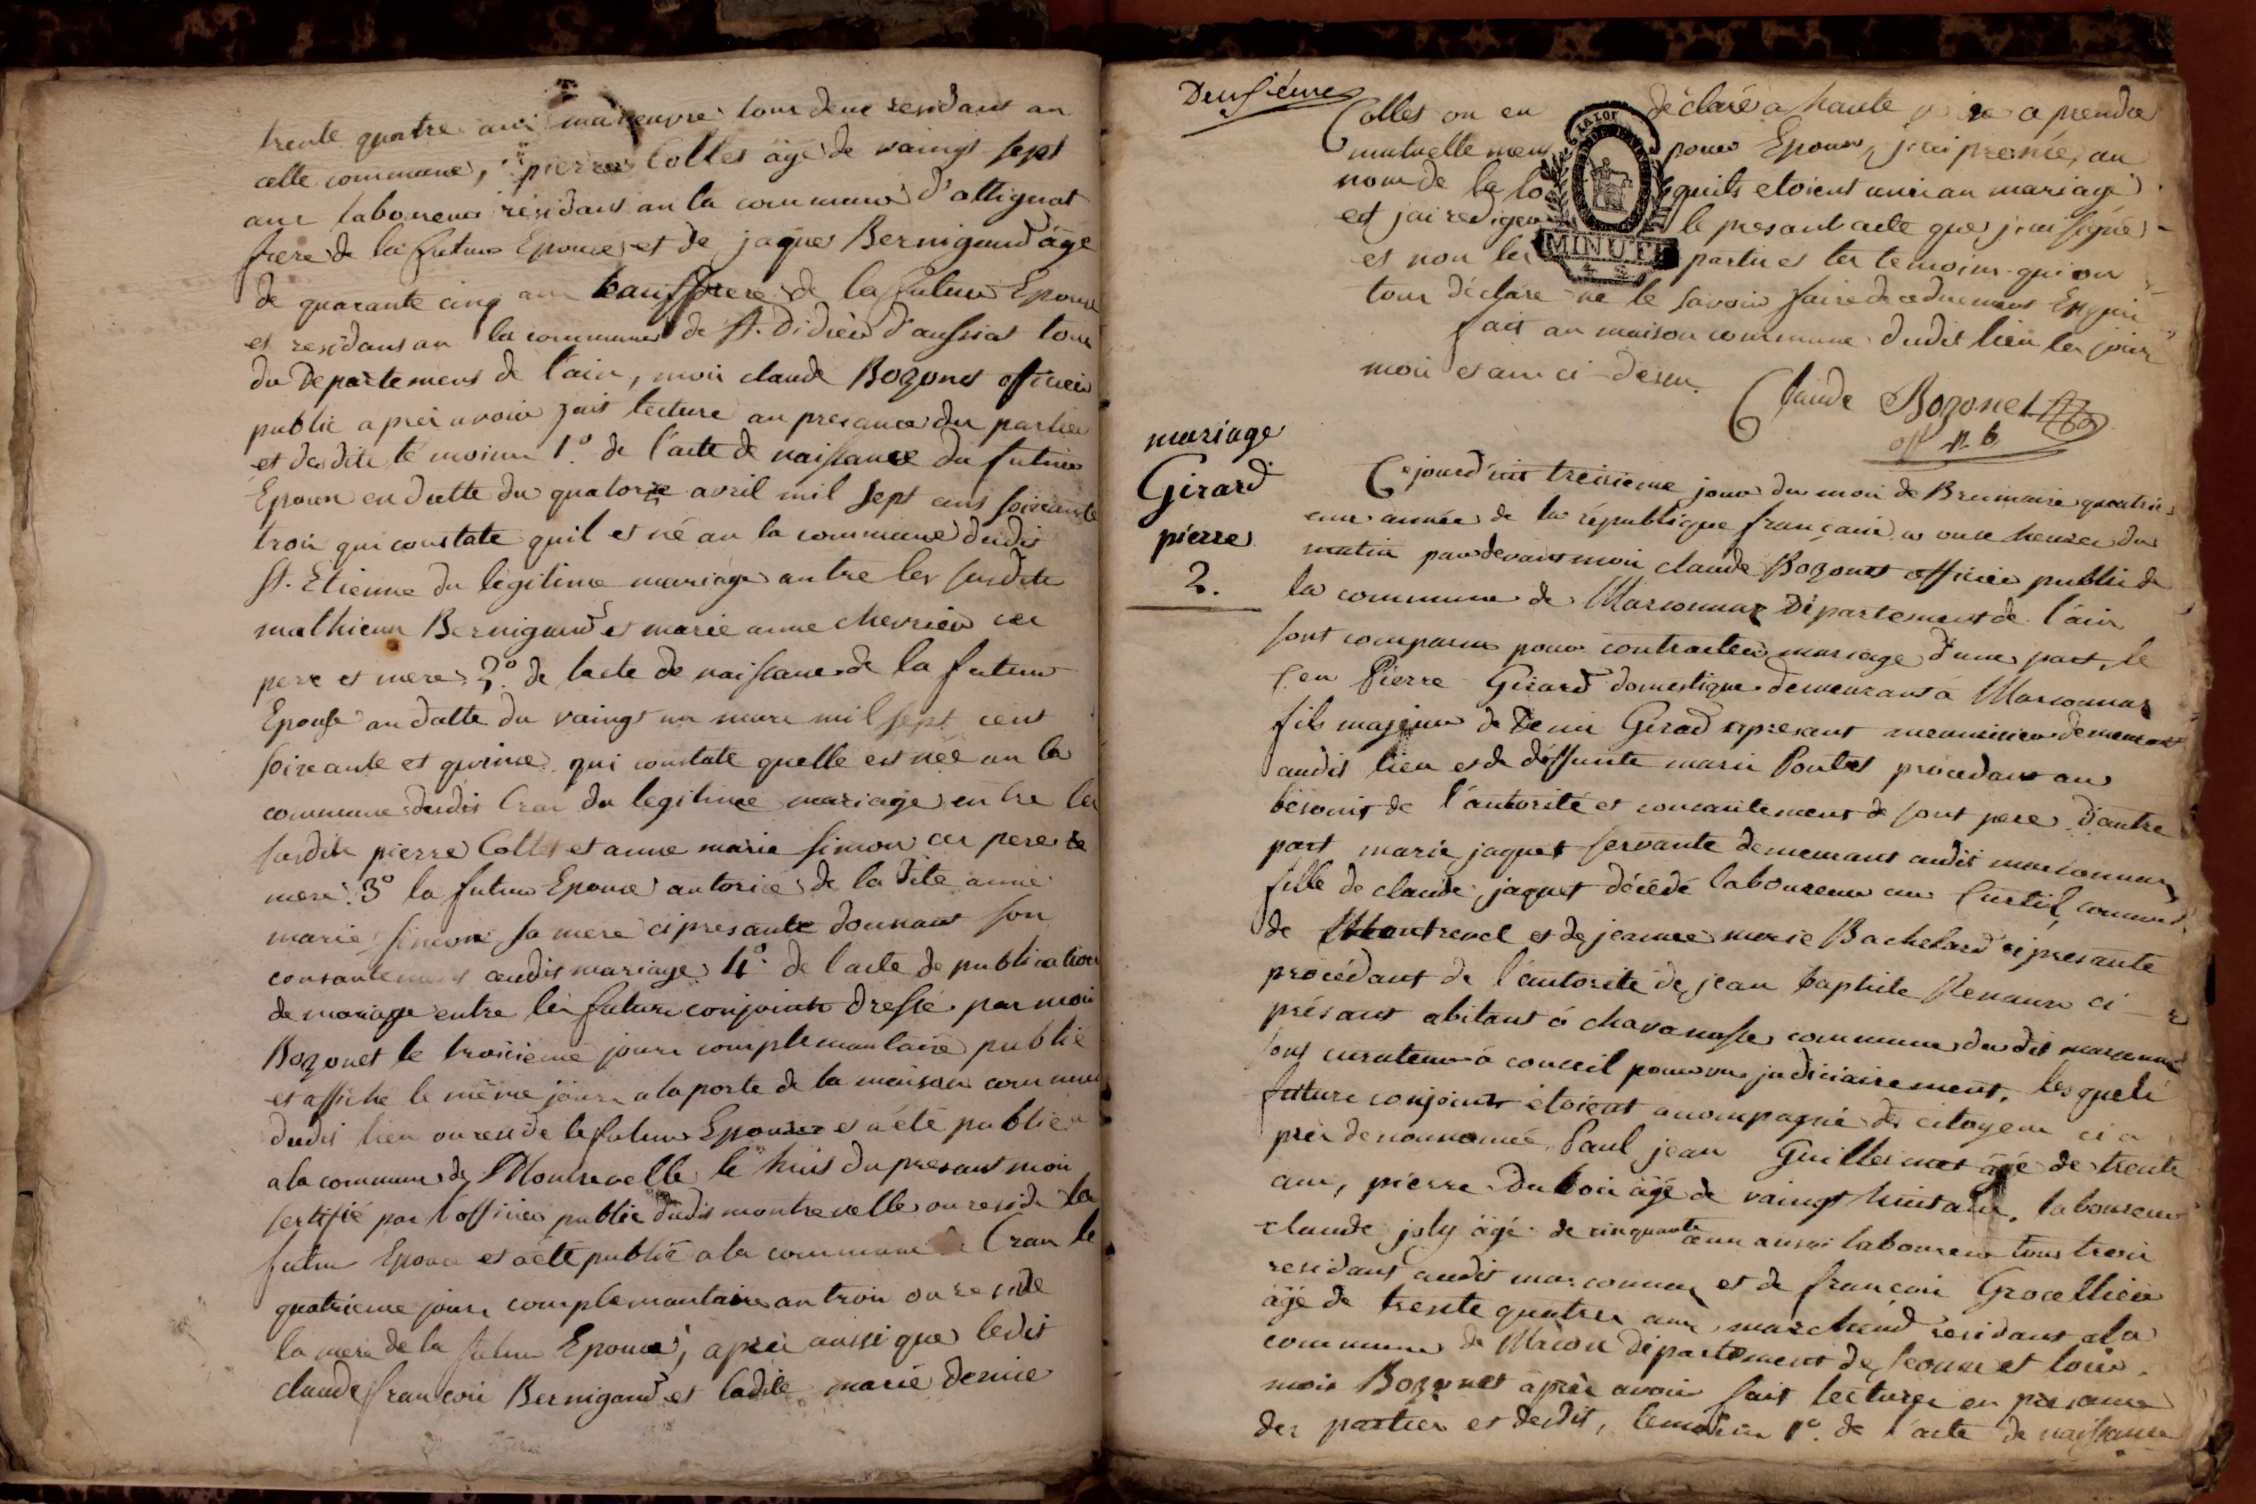 trente quatre ans maneuvre tous deux residant an
cette commune, pierre Colles âgé de vaingt sept
ans laboureur residant an la commune d'attignat
frere de la future Epouse et de jaques Bernigaud âge
de quarante cinq ans beauffrere de la future Epouse
et residant an la commune de St. Didier d'aussiat tous
du Departement de l'ain, moi claude Bozonet officier
public aprei avoir fait lecture an presance des parties
et desdits te moins 1º. de l'acte de naissance du futur
Epoux en datte du quatorze avril mil sept cens soixante
troi qui constate quil et né an la commune dudit
St. Etienne du legitime mariage antre les susdits
mathieux Bernigaud et marie anne chevrier ces
pere et mere 2º. de lacte de naissance de la future
Epouse an datte du vaingt un mars mil sept cent
soixante et quinze qui constate quelle est née an la
commune dudit Cras du legitime mariage entre les
susdits pierre Colles et anne marie simon ces pere et
mere 3º la future Epouse autorisé de la dite anne
marie simon sa mere ci presante donnant son
consantement audit mariage 4º. de lacte de publication
de mariage entre les futurs conjoints dressé par moi
Bozonet le troisieme jour complemantaire publié
et affiché le même jour a la porte de la maison commune
dudit lieu ou reside le futur Epoux et a été publié
a la commune de Montrevelle le huit du presant moi
sertifié par l'officier public dudit montrevelle ou reside la
futur Epouse et a été publié a la commune de Cras le
quatrieme jour complemantaire an troi ou reside
la mere de la future Epouse, aprei aussi que ledit
claude francoi Bernigaud et ladite marie denise
Deusiéme
Colles on en déclaré a haute a prendre
mutuellement pour Epoux, j'ai pronncé, au
nom de la loi quils etoient uni an mariage
et jai redigé le presant acte que jai signé
et non les partie et les temoins qui on
tous déclaré ne le savoir faire de ce duement
fait an maison commune dudit lieu les jour
moi et an ci-desus.
Claude Bozonet
off p. b
MINUTE
LA LOI
mariage
Girard
pierre
2.
Cejourd'uit treisieme jour du moi de Brumaire quatrie
eme année de la république française a onze heures du
matin pardevant moi claude Bozonet officier public de
la commune de Marsonnaz Département de l'ain
sont comparus pour contracter mariage d'une part, le
Pierre Girard domestique demeurant a Marsonnas
fils majeur de Deni Girad apresant menuisier demeurant
audit lieu et de déffunte marie Pontet procedant au
besoint de l'autorité et consantement de sont pere d'autre
part marie jaquet servante demeurant audit marsonnaz
fille de claude jaquet décédé laboureur au Curtil, commune
de Montrevel et de jeanne marie Bachelard ci presante
procédant de l'autorité de jean baptiste Renaux ci
présant abitant á chavanosse commune du dit marsonnaz
sont curateur á conceil pourvu judiciairement, lesquels
futurs conjoints étoient acompagné de citoyens ci a
prei denommée Paul jean Guillermet âgé de trente
ans, pierre Duboi âgé de vaingt huit ans, laboureur
claude joly âgé de cinquante ans aussi laboureur tous troi
residant audit marsonnaz et de francoi Grocellier
âgé de trente quatre ans marchand residant a la
commune de Macon département de Seonne et loire
moi Bozonet aprèi avoir fait lecture en presance
des parties et desdit, temoins 1º. de l'acte de naissance